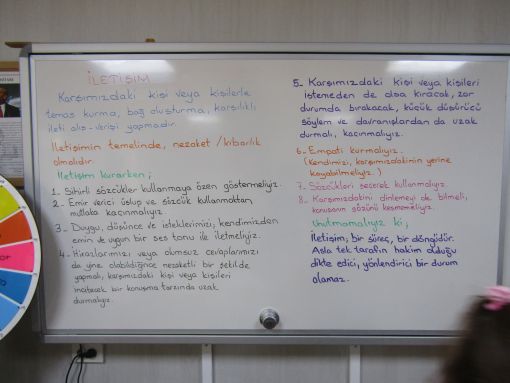 İLETİŞİM
Karşımızdaki kişi veya kişilerle
temas kurma, bağ oluşturma, karşılıklı
ileti alış-verişi yapmadır.
İletişimin temelinde, nezaket /kibarlık
olmalıdır
İletişim kurarken;
1- Sihirli sözcükler kullanmaya özen göstermeliyiz.
2- Emir verici üslup ve sözcük kullanmaktan
mutlaka kaçınmalıyız.
3- Duygu, düşünce ve isteklerimizi, kendimizden
emin ve uygun bir ses tonu ile iletmeliyiz.
4- İtirazlarımızı veya olumsuz cevaplarımızı
da yine olabildiğince nezaketli bir şekilde
yapmalı, karşımızdaki kişi veya kişileri
incitecek bir konuşma tarzından uzak
durmalıyız.
5- Karşımızdaki kişi veya kişileri
istemeden de olsa kıracak, zor
durumda bırakacak, küçük düşürücü
söylem ve davranışlardan da uzak
durmalı, kaçınmalıyız.
6- Empati kurmalıyız.
(Kendimizi, karşımızdakinin yerine
koyabilmeliyiz.)
7- Sözcükleri seçerek kullanmalıyız.
8- Karşımızdakini dinlemeyi de bilmeli,
konuşanın sözünü kesmemeliyiz.
Unutmamalıyız ki;
İletişim; bir süreç, bir döngüdür.
Asla tek tarafın hakim olduğu
dikte edici, yönlendirici bir durum
olamaz.